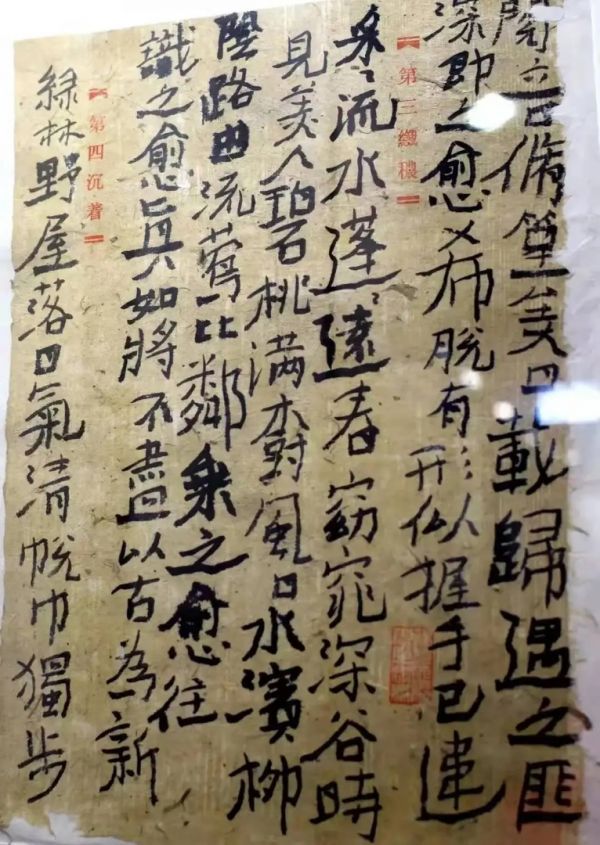 閱音修篁美曰載歸遇之匪
深即之愈希脫有形似握手已違
第三纖穠
采〻流水蓬〻遠春窈窕深谷時
見美人碧桃满樹風日水濱柳
陰路曲流鶯比鄰乘之愈往
識之愈真如將不盡以古為新
第四沉着
緑林野屋落日氣清脫巾獨步